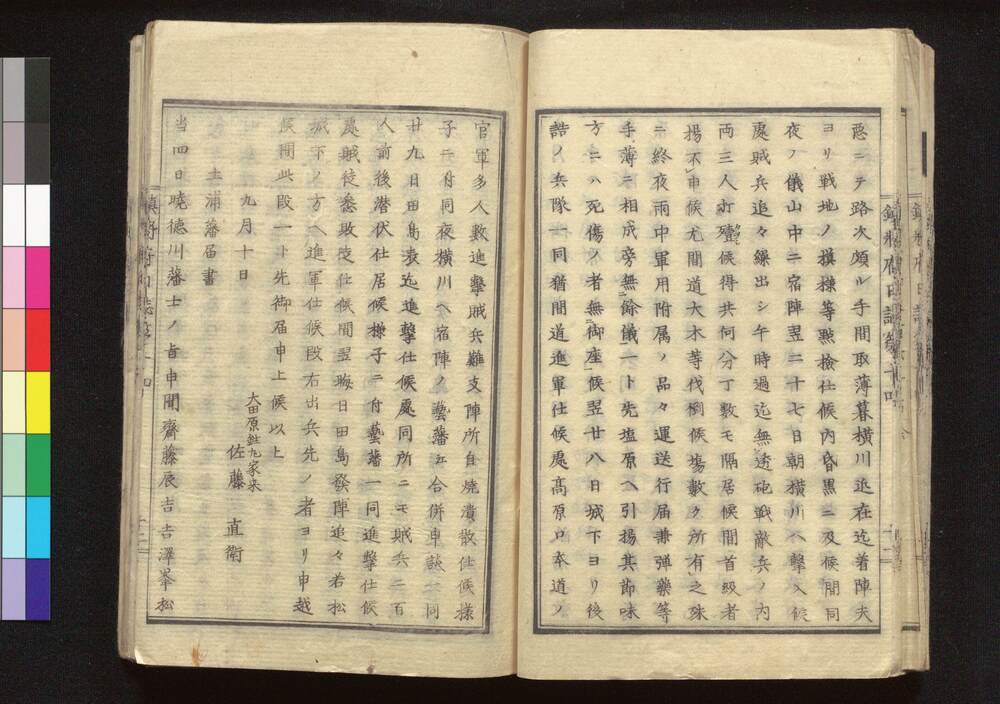 惡ニテ路次頗ル手間取薄暮横川迄在迄着陣夫
ヨリ戰地ノ摸様等點撿仕候內昏黒ニ及候間同
夜ノ儀山中ニ宿陣翌二十七日朝横川ヘ擊入候
處賊兵追々繰出シ午時過迄無透砲戰敵兵ノ內
兩三人打殪候得共何分丁數モ隔居候間首級者
揚不申候尤間道大木等伐倒候塲數ケ所有之殊
ニ終夜雨中軍用附属ノ品々運送行届兼弾藥等
手薄ニ相成旁無餘儀一ト先塩原ヘ引揚其節味
方ニハ死傷ノ者無御座候翌廿八日城下ヨリ後
詰ノ兵隊一同猶間道進軍仕候處髙原口本道ノ
官軍多人數進擊賊兵難支陣所自燒潰散仕候様
子ニ付同夜横川ヘ宿陣ノ藝藩ヱ合併申談一同
廿九日田島表迄進擊仕候處同所ニモ賊兵二百
人前後潜伏仕居候様子ニ付藝藩一同進擊仕候
處賊徒悉敗走仕候間翌晦日田島發陣追々若松
城下ノ方ヘ進軍仕候段右出兵先ノ者ヨリ申越
候間此段一ト先御届申上候以上
九月十日
大田原鉎丸家来
佐藤直衛
土浦藩届書
当四日曉德川藩士ノ旨申聞齋藤辰吉吉澤峯松
鎮將府日誌第二十四